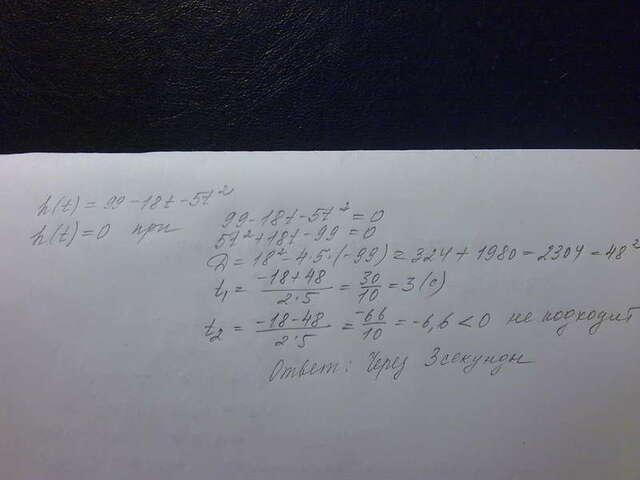 h(t) = 99 - 18t - 5t²
h(t) = 0 при 99 - 18t - 5t² = 0
5t² + 18t - 99 = 0
D = 18² - 4·5·(-99) = 324 + 1980 = 2304 = 48²
t₁ = (-18 + 48)/(2·5) = 30/10 = 3 (с)
t₂ = (-18 - 48)/(2·5) = -66/10 = -6,6 < 0 не подходит
Ответ: Через 3 секунды